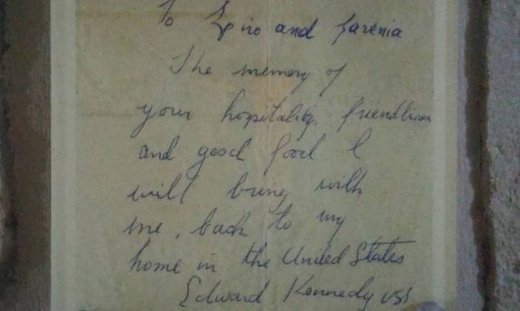 To Spiro and Jarenia
The memory of
your hospitality, friendliness
and good food I
will bring with
me, back to my
home in the United States
Edward Kennedy USS